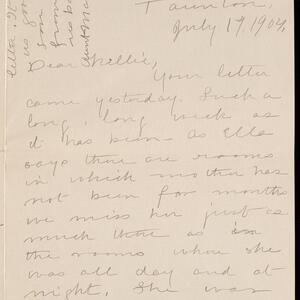 Taunton,
July 17, 1904,
Dear Nellie,
Your letter
came yesterday. Such a
long, long week as
it has been - as Ella
says there are rooms
in which mother has
not been for months
we miss her just as
much there as in
the rooms where she
was all day and at
night. She was
letter. It
us
som
from
Aunt